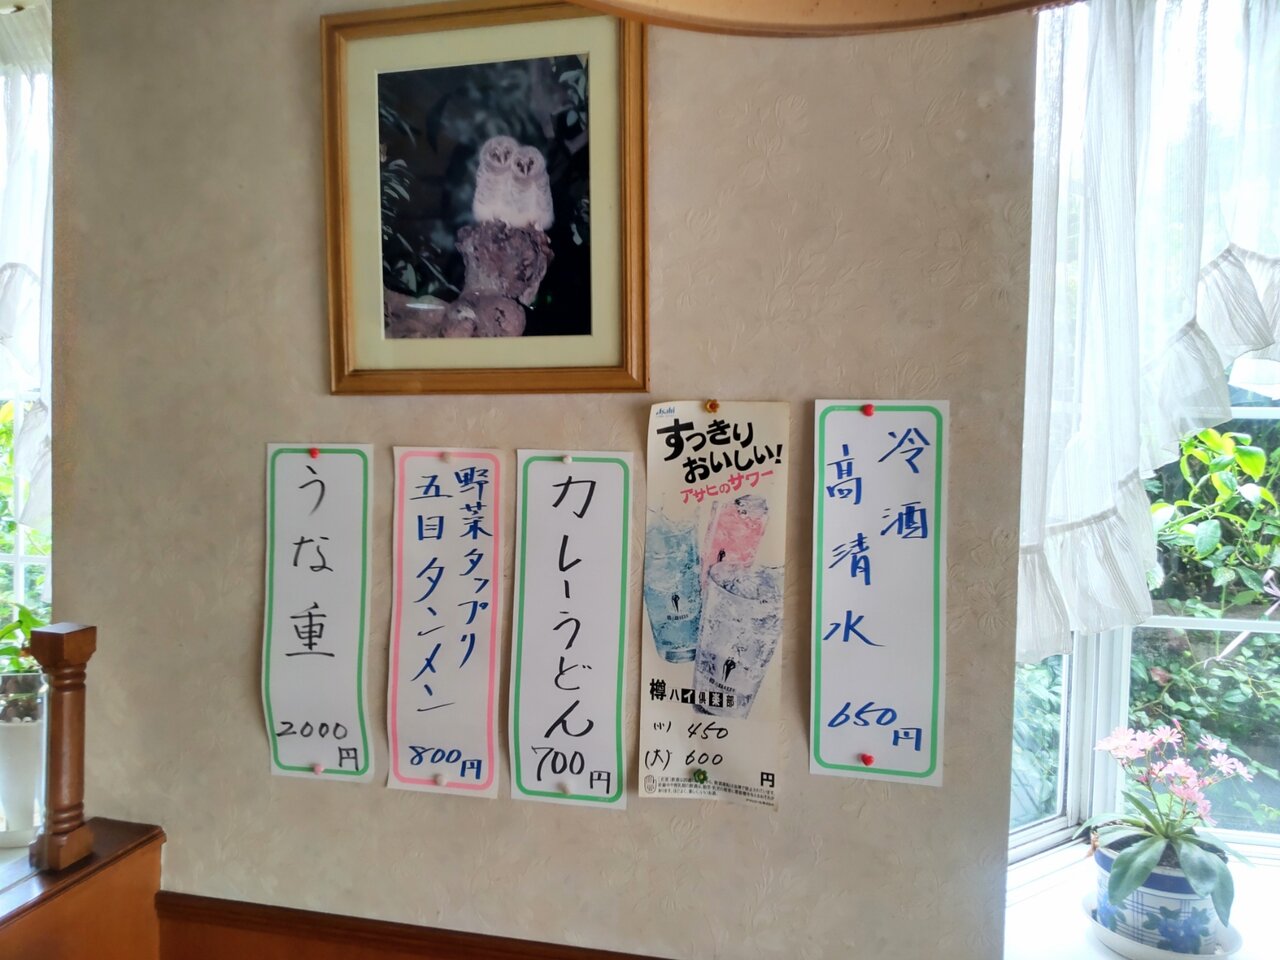 うな重
2000円
野菜タップリ
五目タンメン
800円
カレーうどん
700円
Asahi
すっきり
おいしい!
アサヒのサワー
樽ハイ倶楽部
(小) 450
(大) 600
円
冷酒
高清水
650円